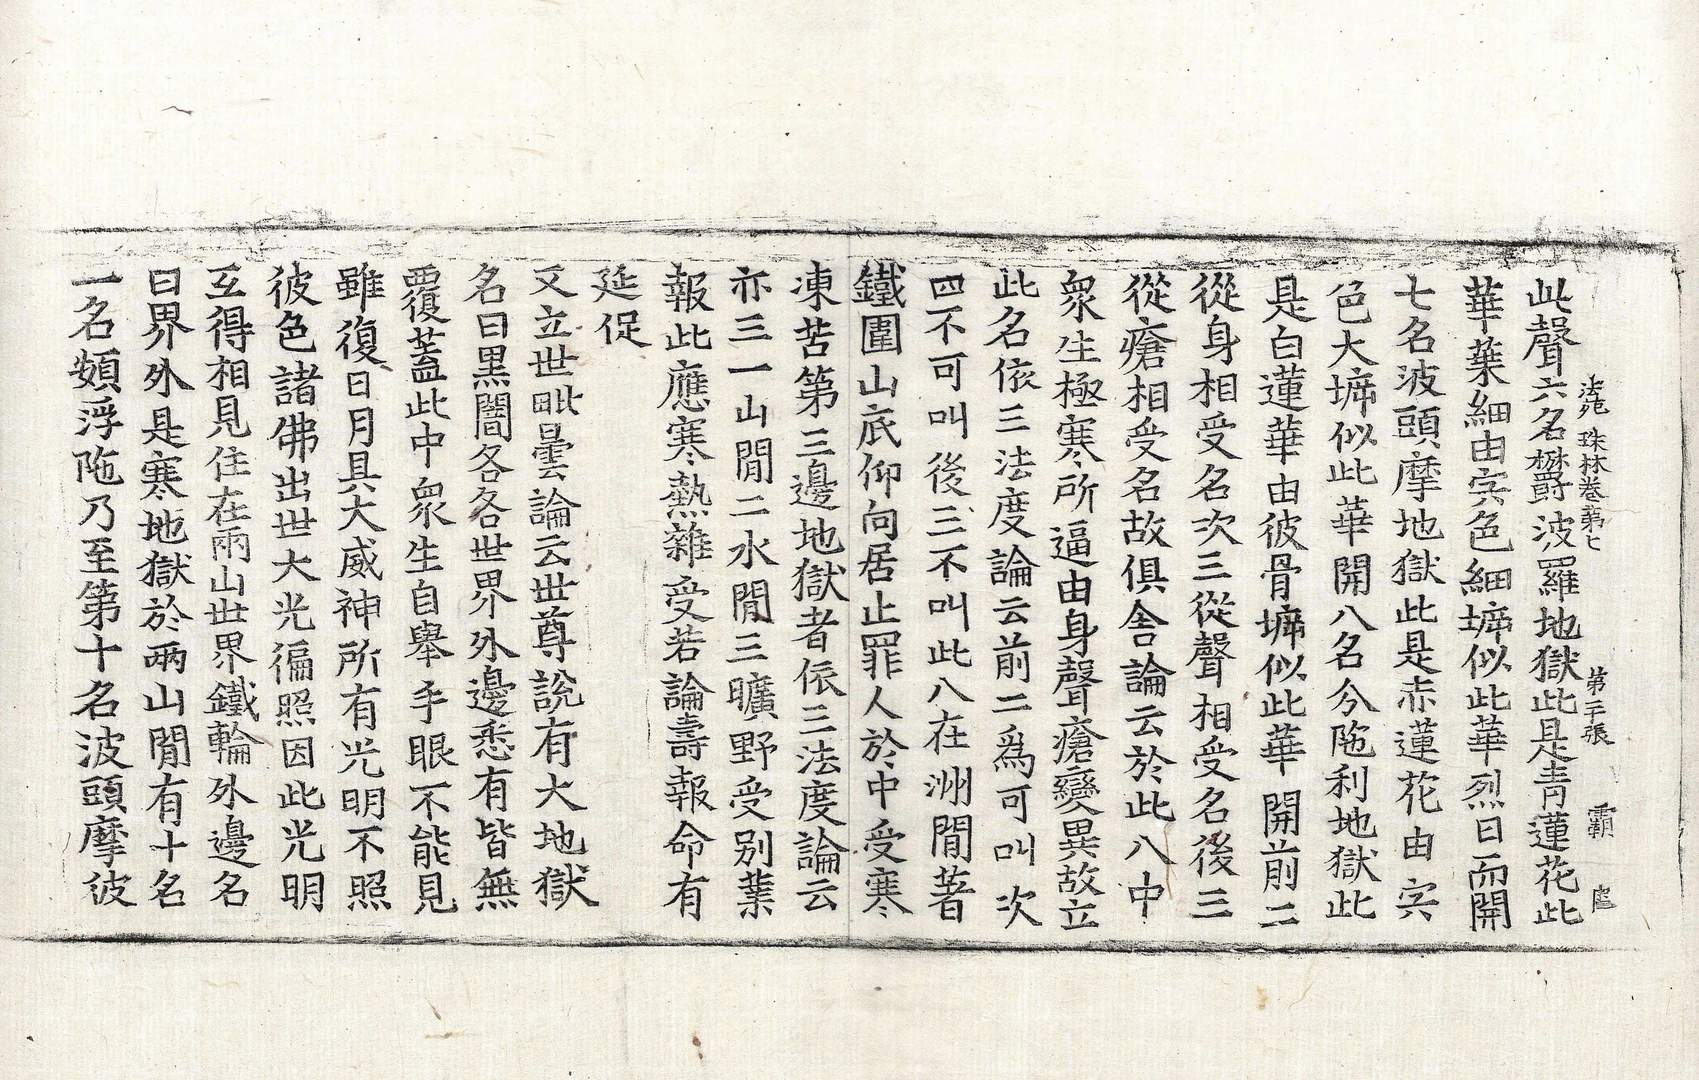 法苑珠林卷第七 第二張 霸 虛
此聲六名欝波羅地獄此是青蓮花此
華葉細由宍色細㾨似此華烈日而開
七名波頭摩地獄此是赤蓮花由宍
色大㾨似此華開八名分陁利地獄此
是白蓮華由彼骨㾨似此華開前二
從身相受名次三從聲相受名後三
從瘡相受名故俱舍論云於此八中
衆生極寒所逼由身聲瘡變異故立
此名依三法度論云前二爲可叫次
四不可叫後三不叫此八在洲閒著
鐵圍山底仰向居止罪人於中受寒
凍苦第三邊地獄者依三法度論云
亦三一山閒二水閒三曠野受別業
報此應寒熱雜受若論壽報命有
延促
又立世毗曇論云世尊說有大地獄
名曰黑闇各各世界外邊悉有皆無
覆蓋此中衆生自舉手眼不能見
雖復日月具大威神所有光明不照
彼色諸佛出世大光徧照因此光明
互得相見住在兩山世界鐵輪外邊名
曰界外是寒地獄於兩山閒有十名
一名頞浮陁乃至第十名波頭摩彼